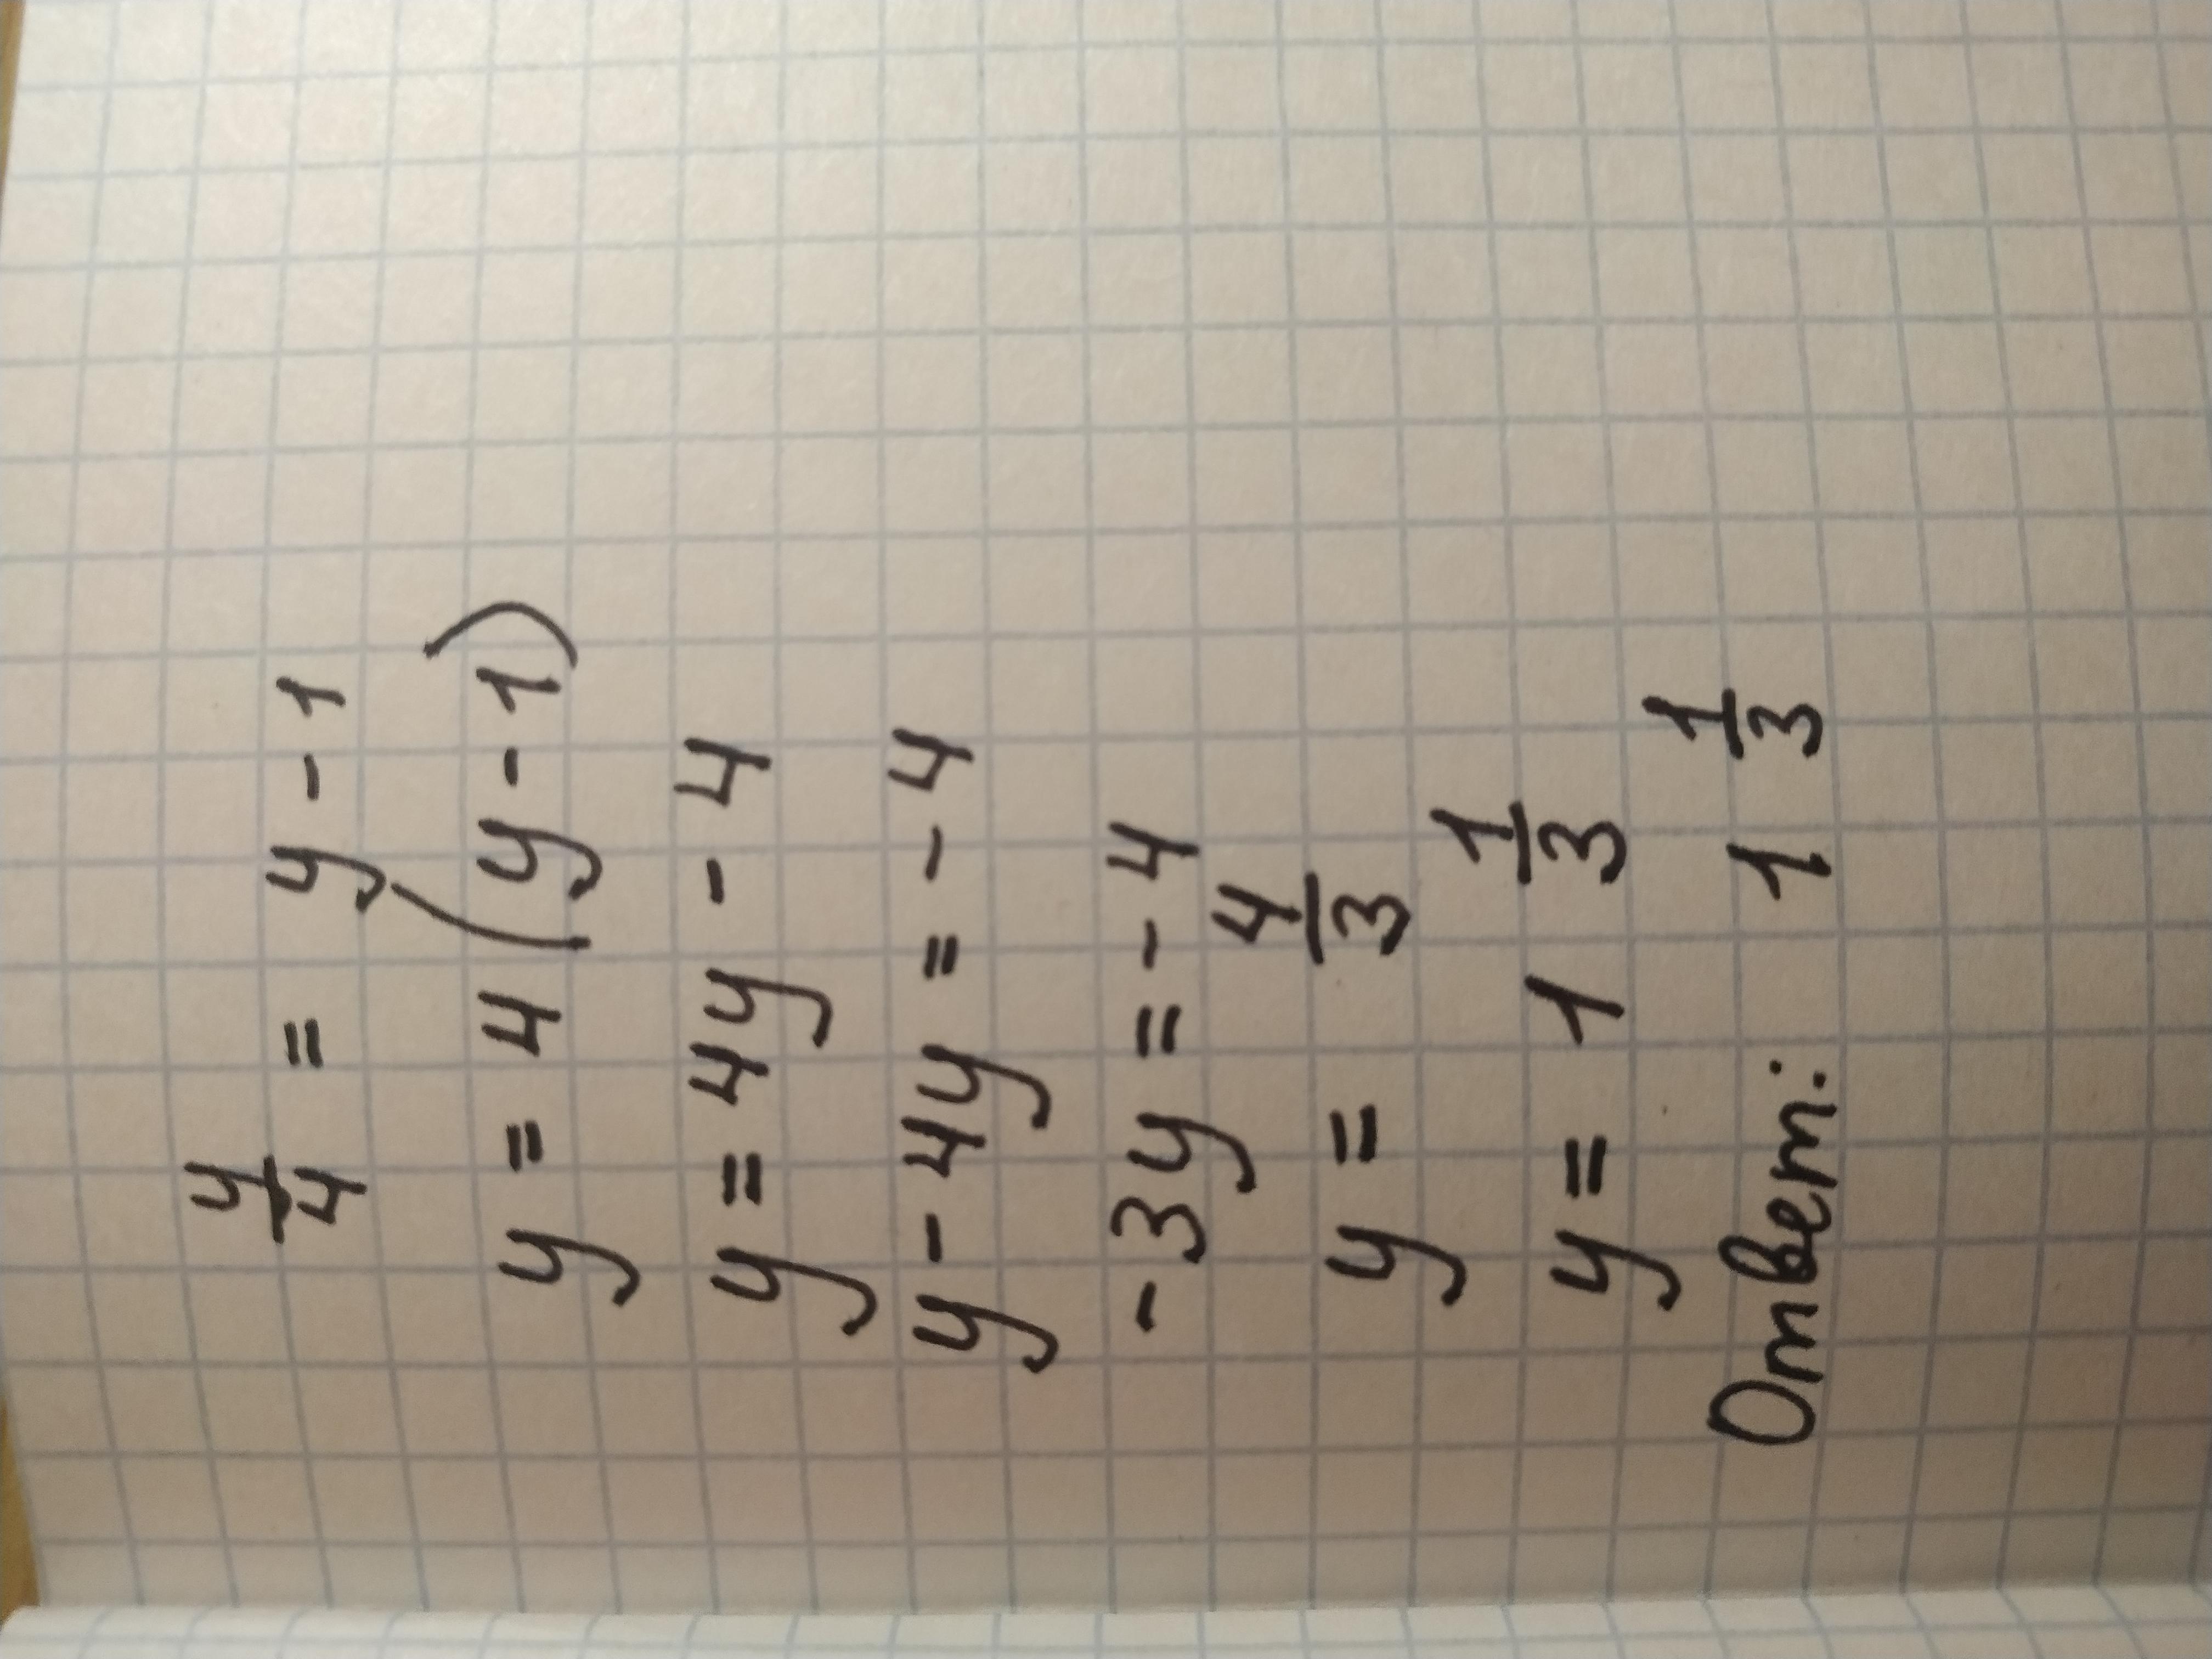 y/4 = y - 1
y = 4(y - 1)
y = 4y - 4
y - 4y = - 4
- 3y = - 4
y = 4/3
y = 1 1/3
Ответ: 1 1/3